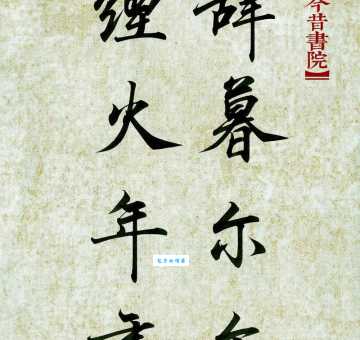 今昔書院】
辞暮尔
煙火年